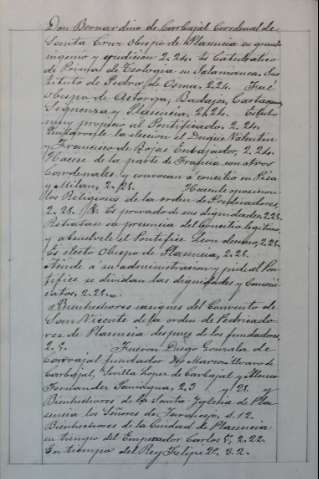 Don Bernardino de Carbajal Cardenal de
Santa Cruz obispo de Plasencia su grande
ingenio y erudicion 2. 24. Es Catedratico
de Prima de Teologia en Salamanca. Sus
tituto de Pedro de Osma, 2.24. Fué
obispo de Astorga, Badajoz, Cartagena
Siguenza y Plasencia, 2.24. Estubo
muy proximo al Pontificado. 2. 24.
el Duque Valentin
y Francisco de Rojas Embajador, 2. 24.
Hacese de la parte de Francia con otros
Cardenales y convocan a concilio en Pisa
y Milan, 2.
los Religiosos de la orden de Predicadores
2. 28. Es privado de sus dignidades 2.28.
Retratase en presencia del Concilio legitimo
y absuelvele el Pontifice Leon decimo, 2.28.
Es electo Obispo de Plasencia, 2. 28.
Atiende a su administracion y pide al Pon
tifice se dividan las dignidades y Canoni
catos, 2. 28.
Bienhechores insignes del Convento de
San Vicente de la orden de Predicado
res de Plasencia despues de los fundadores
2. 9. Fueron Diego Gonzalez de
Carvajal fundador
Carbajal, Sevilla Lopez de Carbajal y
Fernandez 2.3 y 21.
Bienhechores de la Santa Yglesia de Pla
sencia los Señores de 1.12.
Bienhechores de la Ciudad de Plasencia
en tiempo del Emperador Carlos Vº. 2.22.
En tiempo del Rey Felipe 2º, 3.2.